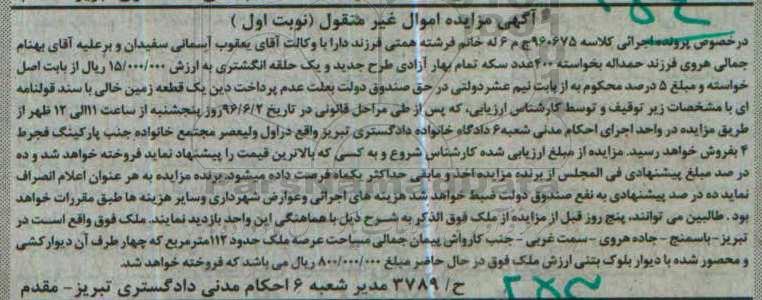 آگهی مزایده اموال غیر منقول (نوبت اول )
درخصوص پرونده اجرائی کلاسه ۹۶۰۶۷۵ج م ۶ له خانم فرشته همتی فرزند دارا با وکالت آقای یعقوب آسمانی سفیدان و برعلیه آقای بهنام
جمالی هروی فرزند حمداله بخواسته ۴۰۰عدد سکه تمام بهار آزادی طرح جدید و یک حلقه انگشتری به ارزش ۱۵/۰۰۰/۰۰۰ ریال از بابت اصل
خواسته و مبلغ ۵ درصد محکوم به از بابت نیم عشر دولتی در حق صندوق دولت بعلت عدم پرداخت دین یک قطعه زمین خالی با سند قولنامه
ای با مشخصات زیر توقیف و توسط کارشناس ارزیابی، که پس از طی مراحل قانونی در تاریخ ۹۶/۶/۲روز پنجشنبه از ساعت ۱۱الی ۱۲ ظهر از
طریق مزایده در واحد اجرای احکام مدنی شعبه۶ دادگاه خانواده دادگستری تبریز واقع دراول ولیعصر مجتمع خانواده جنب پارکینگ فجرط
۴ بفروش خواهد رسید. مزایده از مبلغ ارزیابی شده کارشناس شروع و به کسی که بالاترین قیمت را پیشنهاد نماید فروخته خواهد شد و ده
در صد مبلغ پیشنهادی فی المجلس از برنده مزایده اخذ و مابقی حداکثر یکماه فرصت داده میشود. برنده مزایده به هر عنوان اعلام انصراف
نماید ده در صد پیشنهادی به نفع صندوق دولت ضبط خواهد شد هزینه های اجرائی وعوارض شهرداری وسایر هزینه ها طبق مقررات خواهد
بود . طالبین می توانند، پنج روز قبل از مزایده از ملک فوق الذکر به شرح ذیل با هماهنگی این واحد بازدید نمایند. ملک فوق واقع است در
تبریز -باسمنج - جاده هروی - سمت غربی - جنب کارواش پیمان جمالی مساحت عرصه ملک حدود ۱۱۲مترمربع که چهار طرف آن دیوارکشی
و محصور شده با دیوار بلوک بتنی ارزش ملک فوق در حال حاضر مبلغ ۸۰۰/۰۰۰/۰۰۰ ریال می باشد که فروخته خواهد شد.
ح/ ۳۷۸۹ مدیر شعبه ۶ احکام مدنی دادگستری تبریز- مقدم